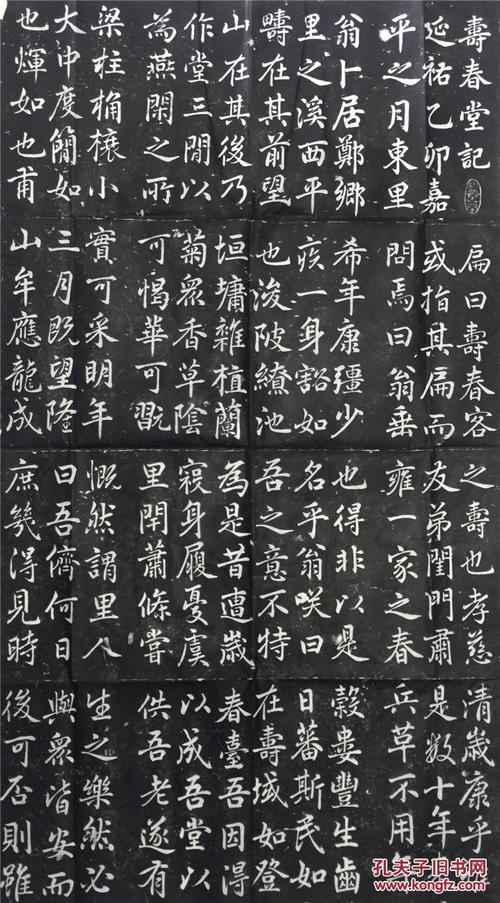 壽春堂記
延祐乙卯嘉
平之月東里
翁卜居鄭鄉
里之溪西平
疇在其前望
山在其後乃
作堂三閒以
為燕閑之所
梁柱桷榱小
大中度簡如
也煇如也甫
扁曰壽春客
或指其扁而
問焉曰翁垂
希年康彊少
疾一身豁如
也浚陂繚池
垣墉雜植蘭
菊眾香草陰
可愒華可翫
實可采明年
三月既望隆
山牟應龍成
之壽也孝慈
友弟閨門肅
雍一家之春
也得非以是
名乎翁咲曰
吾之意不特
為是昔遭歲
寑身履憂虞
里閈蕭條嘗
慨然謂里人
曰吾儕何日
庶幾得見時
清歲康乎
是數十年
兵革不用
穀婁豐生齒
日蕃斯民如
在壽域如登
春臺吾因得
以成吾堂以
供吾老遂有
生之樂然必
與眾皆安而
後可否則雖
孔夫子旧书网
www.kongfz.com